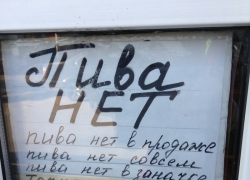 Пива
НЕТ
пива нет в продаже
пива нет совсем
пива нет в заначке